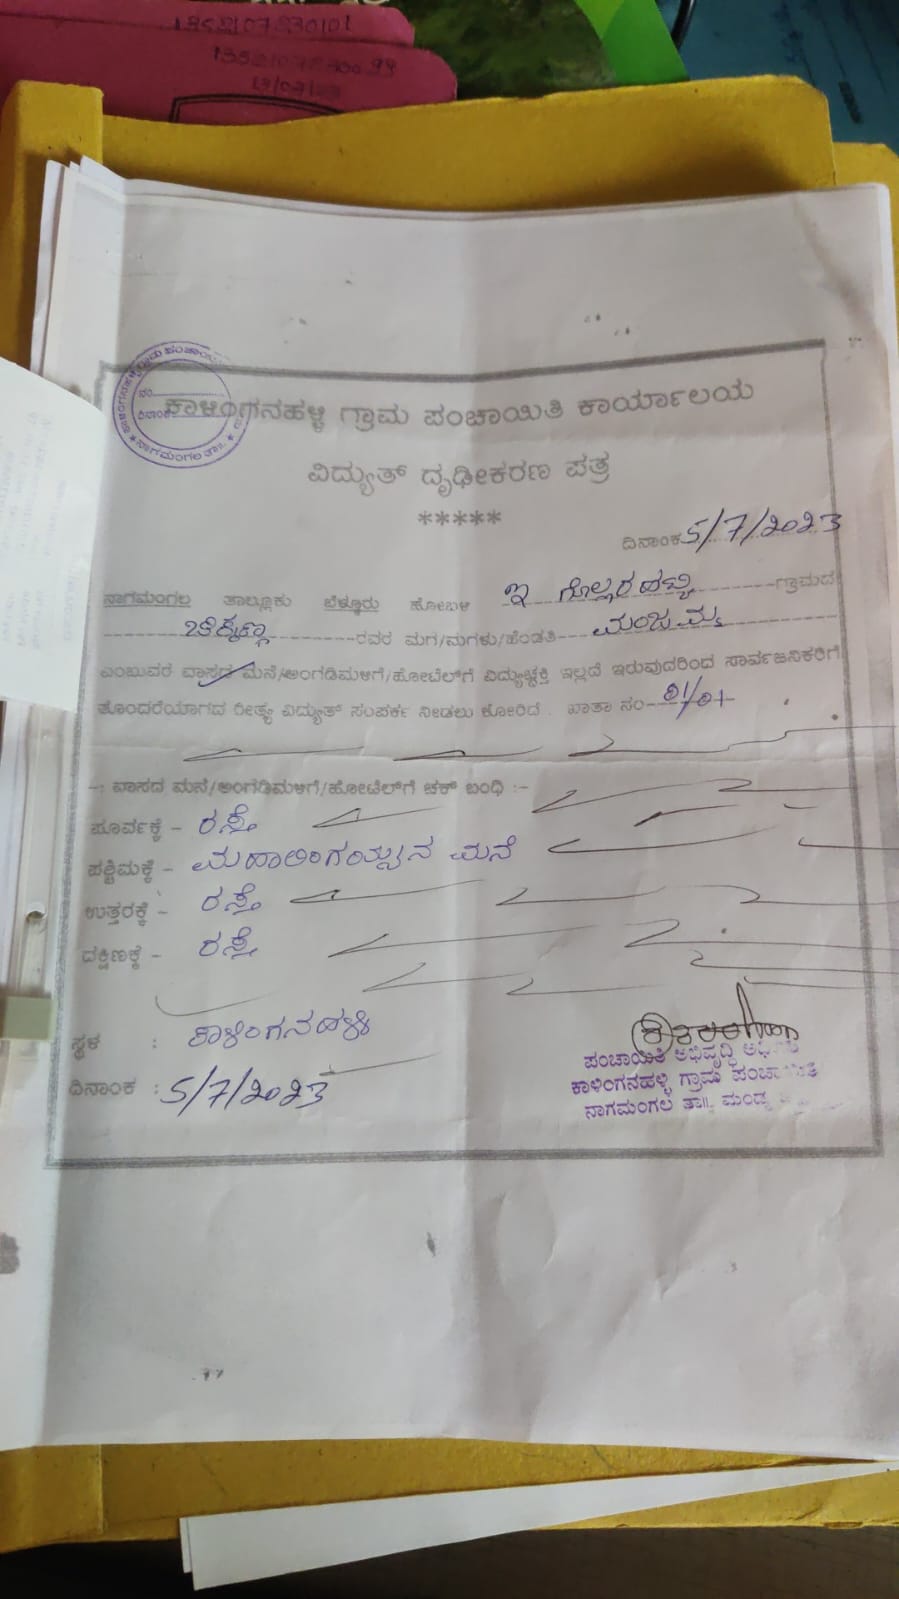 1352107230101
ಕಾಳಿಂಗನಹಳ್ಳಿ ಗ್ರಾಮ ಪಂಚಾಯಿತಿ ಕಾರ್ಯಾಲಯ
ನಾಗಮಂಗಲ ತಾ||
ವಿದ್ಯುತ್ ದೃಢೀಕರಣ ಪತ್ರ
*****
ದಿನಾಂಕ 5/7/2023
ನಾಗಮಂಗಲ ತಾಲ್ಲೂಕು ಬೆಳ್ಳೂರು ಹೋಬಳಿ ಇ ಗೊಲ್ಲರಹಟ್ಟಿ ಗ್ರಾಮದ
ಚಿಕ್ಕಣ್ಣ ರವರ ಮಗ/ಮಗಳು/ಹೆಂಡತಿ ಮಂಜಮ್ಮ
ಎಂಬುವರ ವಾಸದ ಮನೆ/ಅಂಗಡಿಮಳಿಗೆ/ಹೋಟೆಲ್‌ಗೆ ವಿದ್ಯುಚ್ಛಕ್ತಿ ಇಲ್ಲದೆ ಇರುವುದರಿಂದ ಸಾರ್ವಜನಿಕರಿಗೆ
ತೊಂದರೆಯಾಗದ ರೀತ್ಯ ವಿದ್ಯುತ್ ಸಂಪರ್ಕ ನೀಡಲು ಕೋರಿದೆ. ಖಾತಾ ಸಂ
-: ವಾಸದ ಮನೆ/ಅಂಗಡಿಮಳಿಗೆ/ಹೋಟೆಲ್‌ಗೆ ಚಕ್ ಬಂಧಿ :-
ಪೂರ್ವಕ್ಕೆ - ರಸ್ತೆ
ಪಶ್ಚಿಮಕ್ಕೆ - ಮಹಾಲಿಂಗಯ್ಯನ ಮನೆ
ಉತ್ತರಕ್ಕೆ - ರಸ್ತೆ
ದಕ್ಷಿಣಕ್ಕೆ - ರಸ್ತೆ
ಸ್ಥಳ : ಕಾಳಿಂಗನಹಳ್ಳಿ
ದಿನಾಂಕ : 5/7/2023
ಪಂಚಾಯಿತಿ ಅಭಿವೃದ್ಧಿ
ಕಾಳಿಂಗನಹಳ್ಳಿ ಗ್ರಾಮ ಪಂಚಾಯಿತಿ
ನಾಗಮಂಗಲ ತಾ|| ಮಂಡ್ಯ